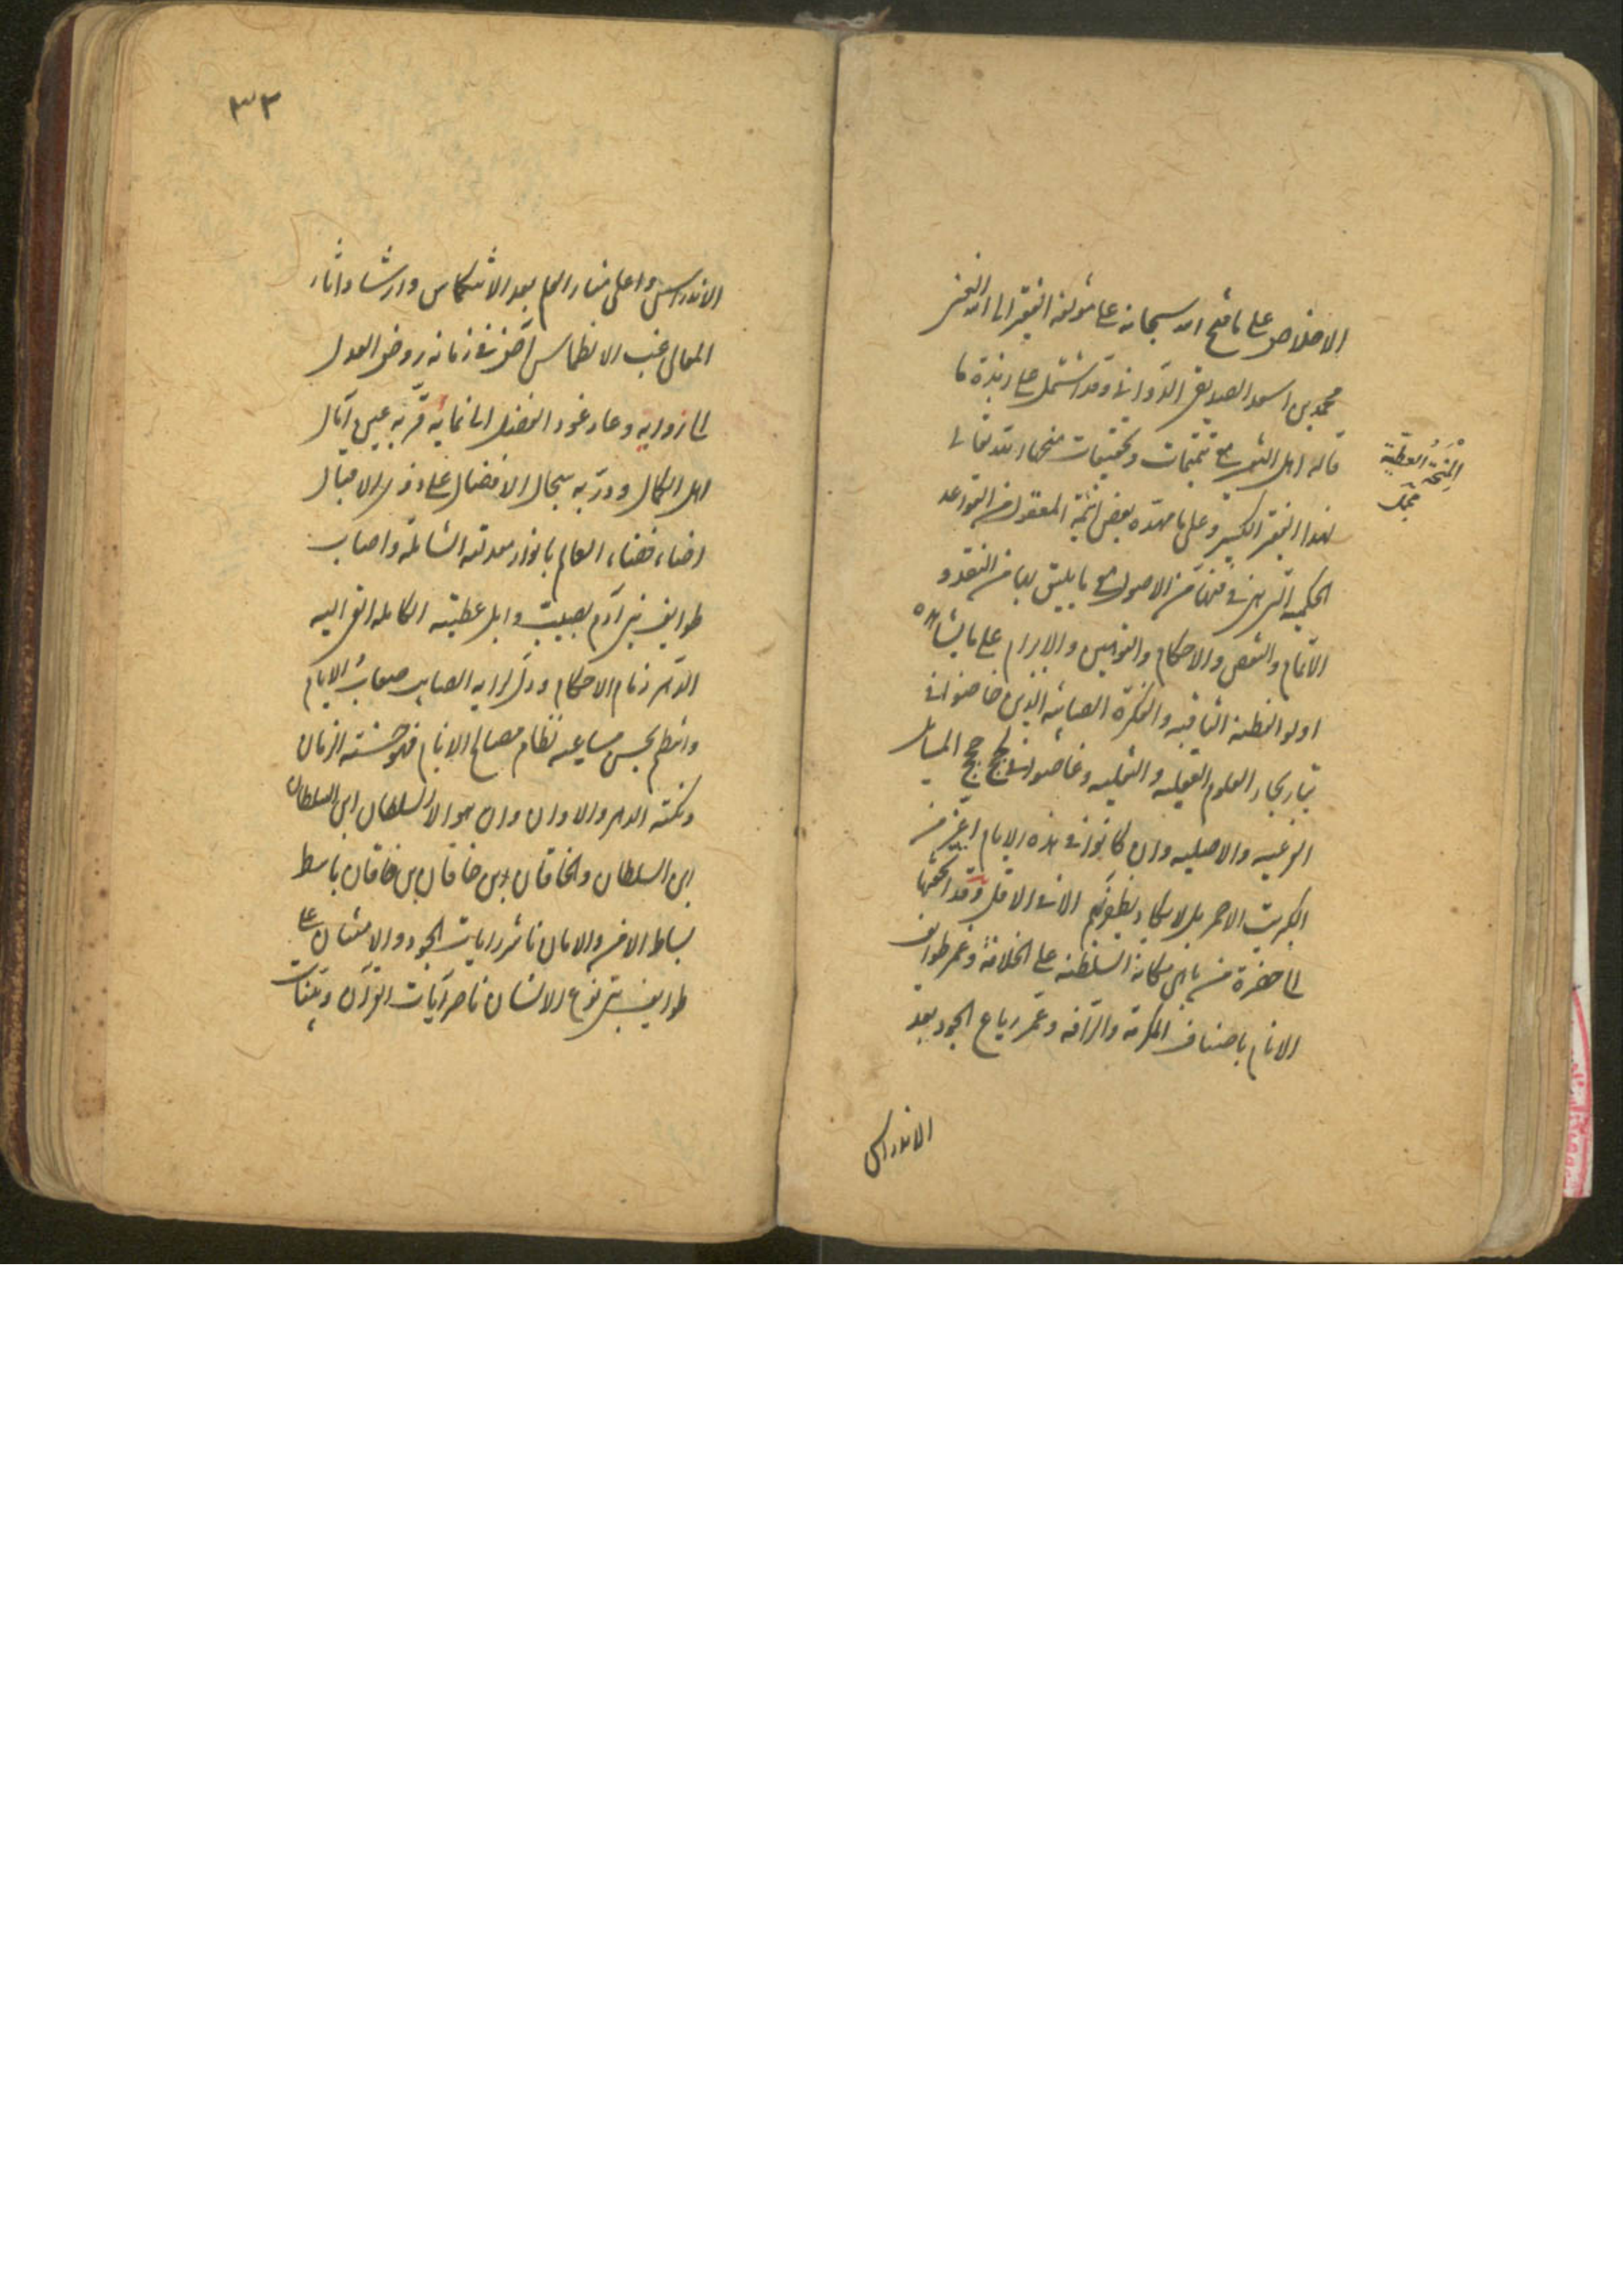 الاخلاص على ما فتح الله سبحانه على مؤلفه الفقير الى الله الغنى
محمد بن اسعد الصديقى الدوانى وقد اشتمل على زبدة ما
قاله اهل الشهود مع تتميمات وتحقيقات منحها الله تعالى
لهذا الفقير الكسير وعلى ما مهده بعض ائمة المعقول من القواعد
المنحة العطية
الحكمية التى هى فى فننا من الاصول مع ما يليق بها من النقد و
الاتمام والنقص والاحكام والتوهين والابرام على ما يشاهده
اولو الفطنة الثاقبه والفكرة الصائبه الذين خاضوا فى
تيار بحار العلوم العقليه والنقليه وغاصوا فى لجج المسايل
الفرعيه والاصليه وان كانوا فى هذه الايام اعز من
الكبريت الاحمر بل لا يكاد يظفر بهم الا فى الاقل وقد اتحفتها
الى حضرة من باهى مكانه السلطنه على الخلافة وغمر طوايف
الانام باصناف المكرمة والرأفه وعمر رباع الجود بعد
الاندراس
٣٣
الاندراس واعلى منار العلم بعد الانتكاس وارشاد اثار
المعالى غب الانطماس اخضر فى زمانه روض العدل
اهل الكمال ودر به سجال الافضال على ذوى الاقبال
اضاء فضاء العالم بانوار معدلته الشاملة واصاب
طوايف بنى آدم بصيب وابل عطيته الكامله القى اليه
الدهر زمام الاحكام وذل لرايه الصايب صعاب الايام
وانتظم بحسن مساعيه نظام مصالح الانام فهو حسنته الزمان
ونكتة الدهر والاوان وان هو الا السلطان ابن السلطان
ابن السلطان والخاقان بن خاقان بن خاقان باسط
بساط الامن والامان ناشر رايات الجود والامتنان على
طوايف بنى نوع الانسان ناصر آيات القرآن وبينات